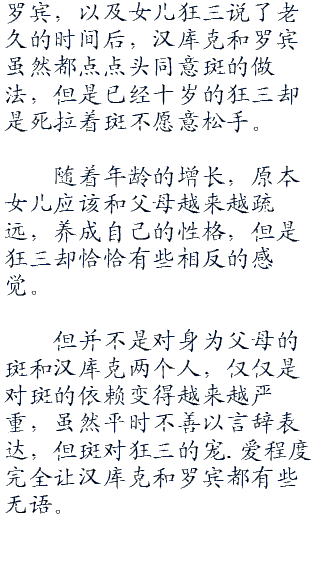 罗宾，以及女儿狂三说了老
久的时间后，汉库克和罗宾
虽然都点点头同意斑的做
法，但是已经十岁的狂三却
是死拉着斑不愿意松手。
随着年龄的增长，原本
女儿应该和父母越来越疏
远，养成自己的性格，但是
狂三却恰恰有些相反的感
觉。
但并不是对身为父母的
斑和汉库克两个人，仅仅是
对斑的依赖变得越来越严
重，虽然平时不善以言辞表
达，但斑对狂三的宠.爱程度
完全让汉库克和罗宾都有些
无语。